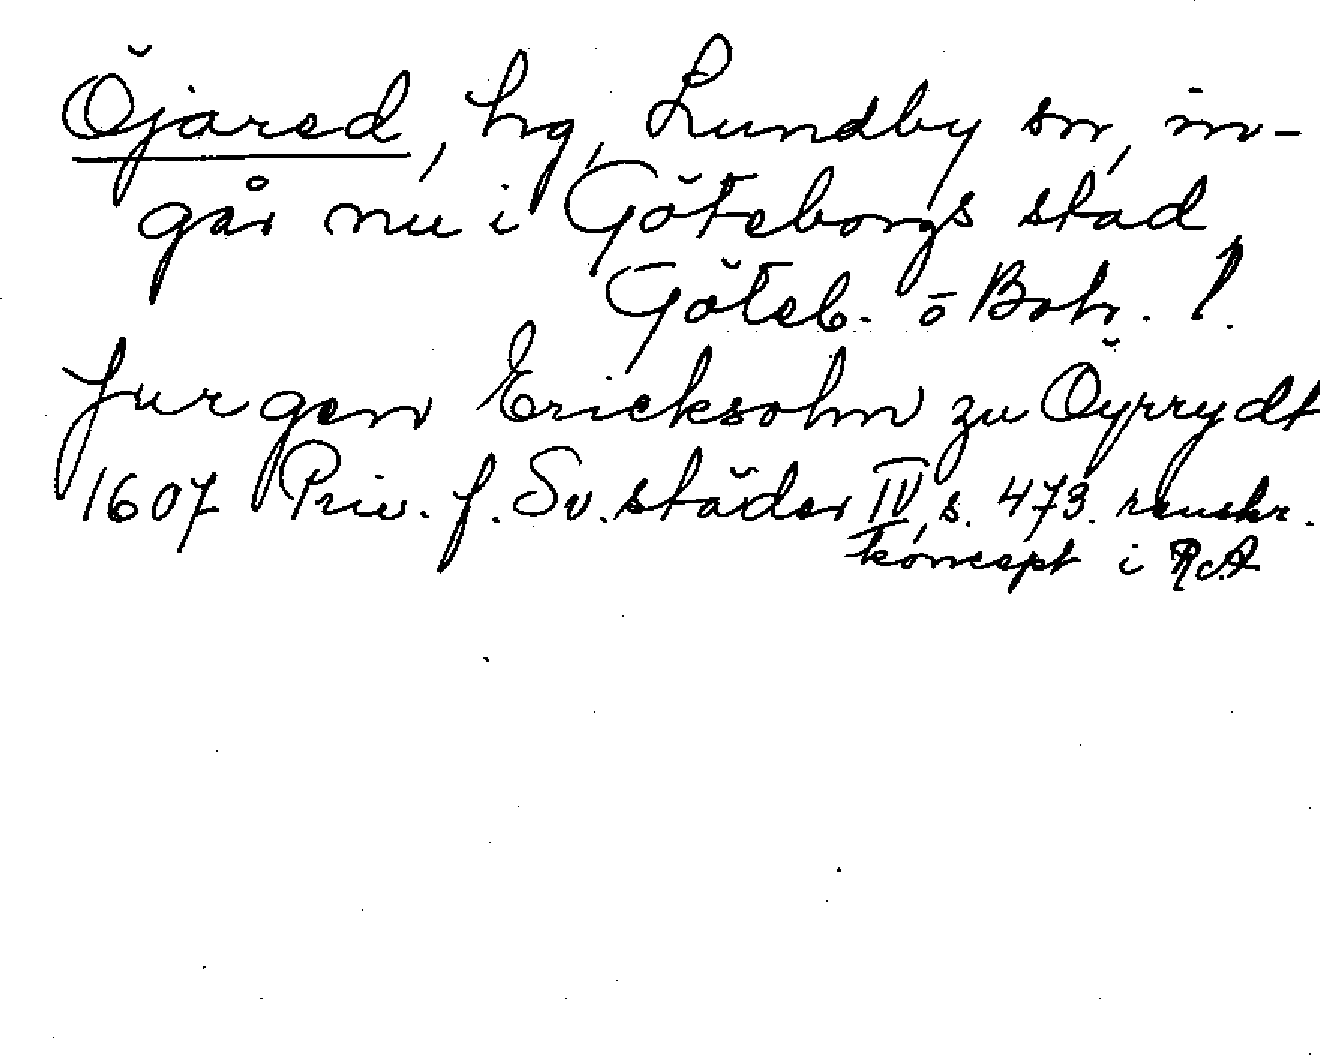 Öjared, hg, Lundby sn, in-
går nu i Göteborgs stad
Göteb. o Boh. l.
Jurgen Ericksohn zu Öyrrydt
1607 Priv. f. Sv. städer IV, s. 473. renskr.
koncept i RA